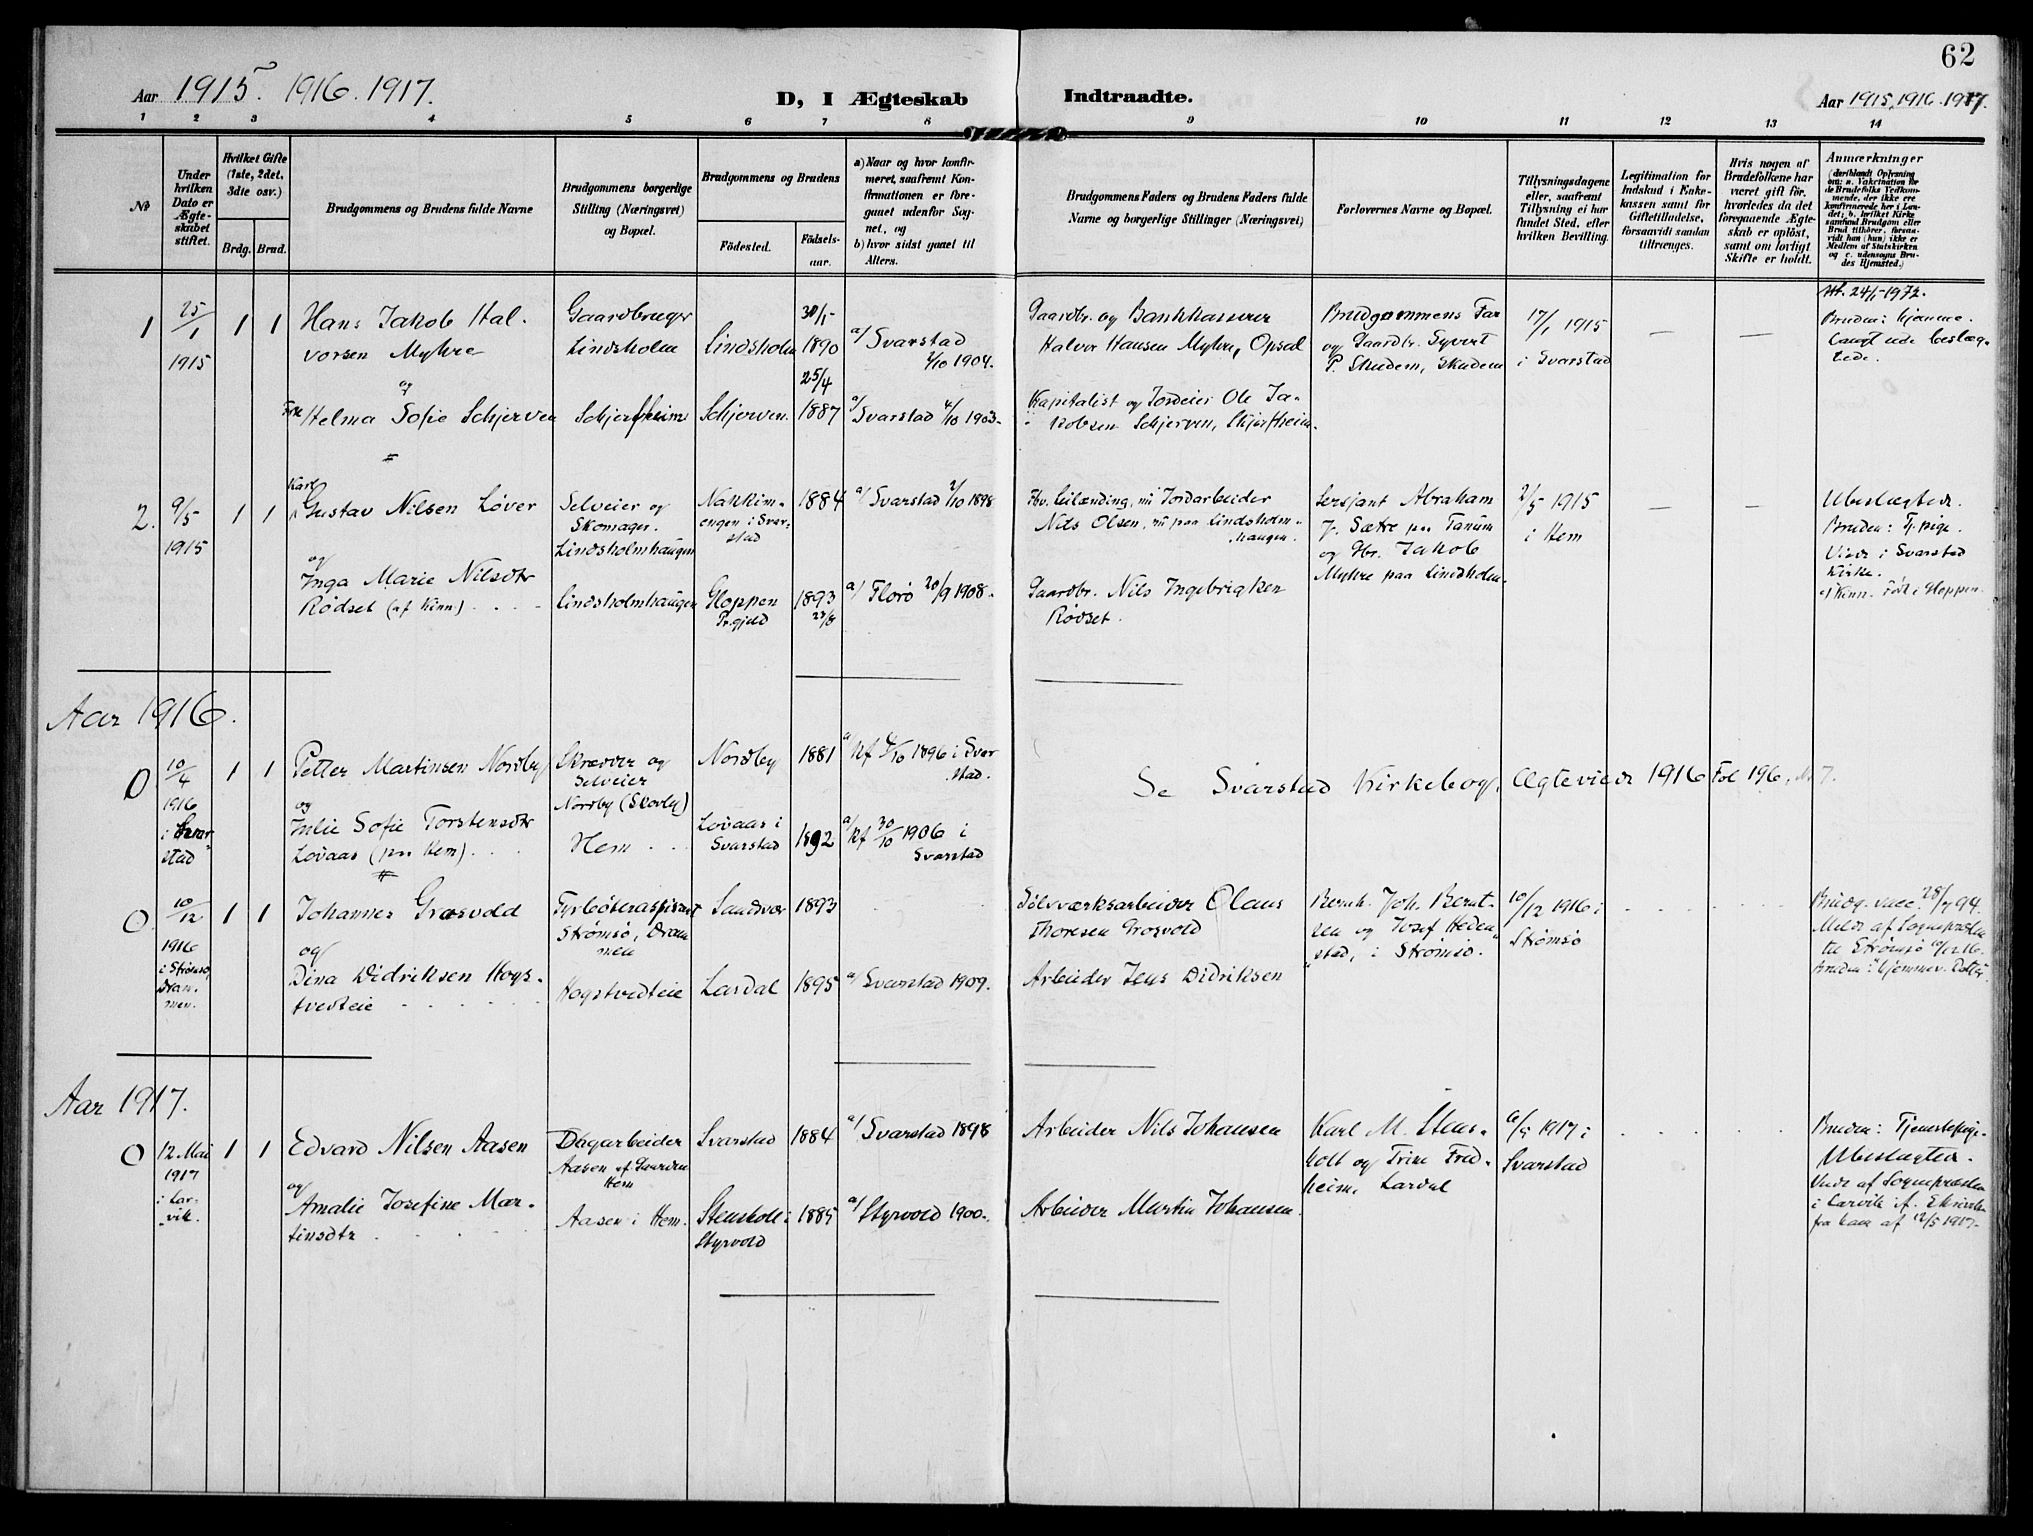 62
Aar 1915. 1916. 1917.
D, I Ægteskab Indtraadte.
Aar 1915, 1916. 1917.
1 2 3 4 5 6 7 8 9 10 11 12 13 14
No
Under hvilken Dato er Ægteskabet stiftet.
Hvilket Gifte (1ste, 2det, 3die osv.)
Brdg. Brud.
Brudgommens og Brudens fulde Navne
Brudgommens borgerlige Stilling (Næringsvei) og Bopæl.
Brudgommens og Brudens
Födested.
Födsels-aar.
a) Naar og hvor konfirmeret, saafremt Konfirmationen er foregaaet udenfor Sognet, og
b) hvor sidst gaaet til Alters.
Brudgommens Faders og Brudens Faders fulde Navne og borgerlige Stillinger (Næringsvei)
Forlovernes Navne og Bopæl.
Tillysningsdagene eller, saafremt Tillysning ei har fundet Sted, efter hvilken Bevilling.
Legitimation for Indskud i Enkekassen samt for Giftetilladelse, forsaavidt saadan tiltrænges.
Hvis nogen af Brudefolkene har været gift før, hvorledes da det foregaaende Ægteskab er opløst, samt om lovligt Skifte er holdt.
Anmærkninger
(deriblandt Oplysning om: a. Vakcination for de Brudefolks Vedkommende, der ikke ere konfirmerede her i Landet; b. hvilket Kirkesamfund Brudgom eller Brud tilhører, forsaavidt han (hun) ikke er Medlem af Statskirken og c. udensogns Brudes Hjemsted.)
1 25/1 1915 1 1
Hans Jakob Halvorsen Myhre
Gaardbruger Lindsholm
Lindsholm
30/5 1890
a/ Svarstad 2/10 1904.
Gaardbr. og Bankkasserer Halvor Hansen Myhre, Opsal
Brudgommens Far og Gaardbr. Syvert P. Skudem, Skudem
17/1 1915 i Svarstad
— —
Att. 24/5-1972.
Bruden: hjemme. Langt ude beslægtede.
og
Frk. Helma Sofie Schjerven
Schjerfheim
Schjerven.
25/4 1887
a/ Svarstad 4/10 1903.
Kapitalist og Jordeier Ole Jakobsen Schjerven, Skjerfheim.
2. 9/5 1915 1 1
Karl Gustav Nilsen Løver
Selveier og Skomager. Lindsholmhaugen
Nakkimengen i Svarstad
1884
a/ Svarstad 2/10 1898
Fhv. Leilænding, nu Jordarbeider Nils Olsen, nu paa Lindsholmhaugen.
Sersjant Abraham J. Sætre paa Tanum og Gbr. Jakob Myhre paa Lindsholm.
2/5 1915 i Hem
— —
Ubeslægtede.
Bruden: Tj.pige.
Viede i Svarstad Kirke.
Født i Gloppen.
og
Inga Marie Nilsdtr Rødset (af Kinn)
Lindsholmhaugen
Gloppen Pr.gjeld
1893 23/8
a/ Florø 20/9 1908.
Gaardbr. Nils Ingebrigtsen Rødset.
Aar 1916.
0 10/4 1916 i Svarstad 1 1
Petter Martinsen Nordby
Skrædder og Selveier Nordby (Skovby)
Nordby
1881
a/ Kf 4/10 1896 i Svarstad.
Se Svarstad Kirkebog, Ægteviede 1916 Fol 196, No 7.
og
Julie Sofie Torstensdtr Lovaas (paa Hem)
Hem
Lovaas i Svarstad
1892
a/ Kf 30/10 1906 i Svarstad
0 10/12 1916 i Strømsø, Drammen. 1 1
Johannes Grosvold
Fyrbøteraspirant Strømsø, Drammen
Sandsvær
1893
Sølvværksarbeider Olaus Thoresen Grosvold
Bernh. Joh. Berntsen og Josef Hedenstad, i Strømsø.
10/12 1916 i Strømsø
Brudg. vacc. 28/7 94.
Meldt af Sognepræsten til Strømsø
Bruden: hjemmev. Datter
og
Dina Didriksen Hogstvedteie
Hogstvedteie
Lardal
1895
a/ Svarstad 1909.
Arbeider Jens Didriksen
Aar 1917.
0 12. Mai 1917 i Larvik. 1 1
Edvard Nilsen Aasen
Dagarbeider Aasen af Gaarden Hem
Svarstad
1884
a/ Svarstad 1898
Arbeider Nils Johansen
Karl M. Stensholt og Trine Fredheim, Lardal
6/5 1917 i Svarstad
Bruden: Tjenestepige.
Ubeslægtede.
Viede af Sognepræsten i Larvik
fra ham af 12/5 1917.
og
Amalie Josefine Martinsdtr
Aasen i Hem.
Stensholt i Styrvold
1885
a/ Styrvold 1900.
Arbeider Martin Johansen.